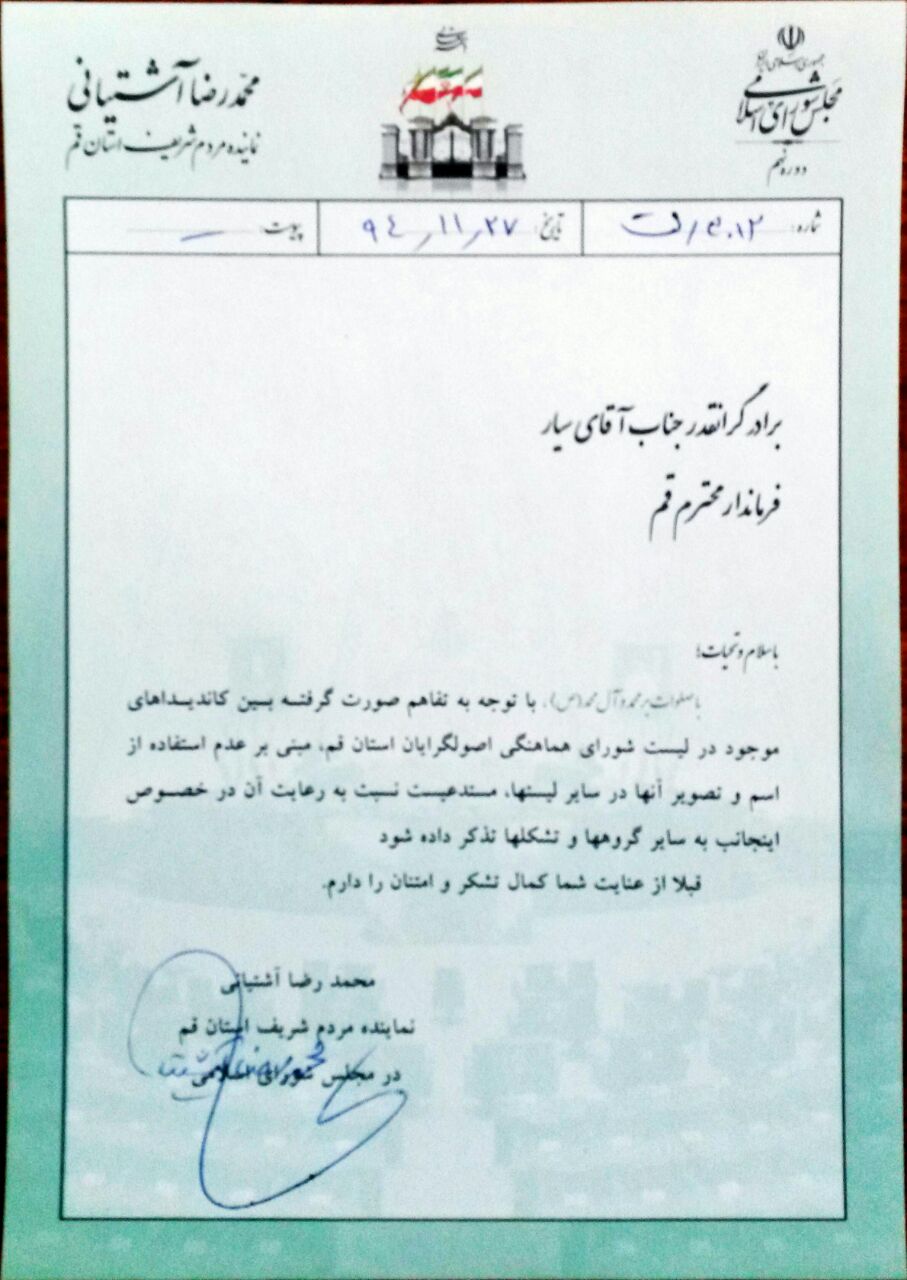 جمهوری اسلامی ایران
مجلس شورای اسلامی
دوره نهم
محمدرضا آشتیانی
نماینده مردم شریف استان قم
شماره:
تاریخ: ۹۴/۱۱/۲۷
پیوست: —
برادر گرانقدر جناب آقای سیار
فرماندار محترم قم
با سلام و تحیات؛
با صلوات بر محمد و آل محمد(ص)، با توجه به تفاهم صورت گرفته بین کاندیداهای
موجود در لیست شورای هماهنگی اصولگرایان استان قم، مبنی بر عدم استفاده از
اسم و تصویر آنها در سایر لیستها، مستدعیست نسبت به رعایت آن در خصوص
اینجانب به سایر گروهها و تشکلها تذکر داده شود
قبلا از عنایت شما کمال تشکر و امتنان را دارم.
محمد رضا آشتیانی
نماینده مردم شریف استان قم
در مجلس شورای اسلامی